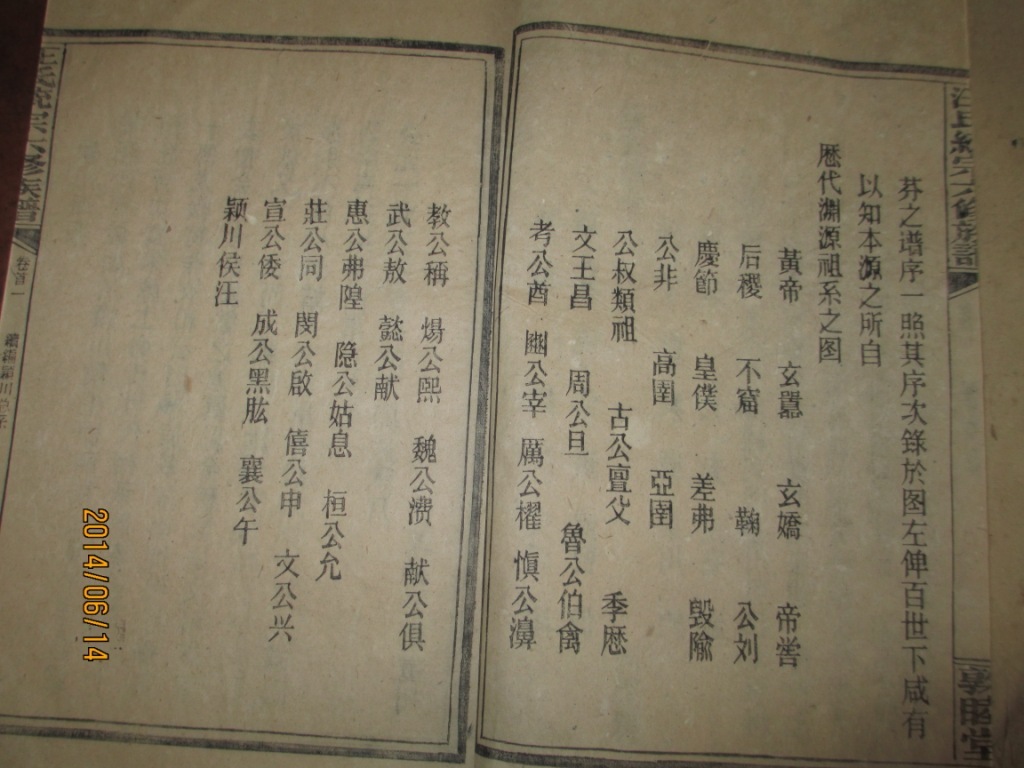 芬之谱序一照其序次錄於图左俾百世下咸有
以知本源之所自
歷代淵源祖系之图
黃帝 玄囂 玄嬌 帝喾
后稷 不窟 鞠 公刘
慶節 皇僕 差弗 毀隃
公非 高圉 亞圉
公叔類祖 古公亶父 季歷
文王昌 周公旦 魯公伯禽
考公酋 幽公宰 厲公櫂 慎公濞
教公稱 煬公熙 魏公溃 献公俱
武公敖 懿公献
惠公弗隍 隐公姑息 桓公允
莊公同 閔公啟 僖公申 文公兴
宣公倭 成公黑肱 襄公午
颖川侯汪
汪氏統宗六修族譜
卷首一
2014/06/14